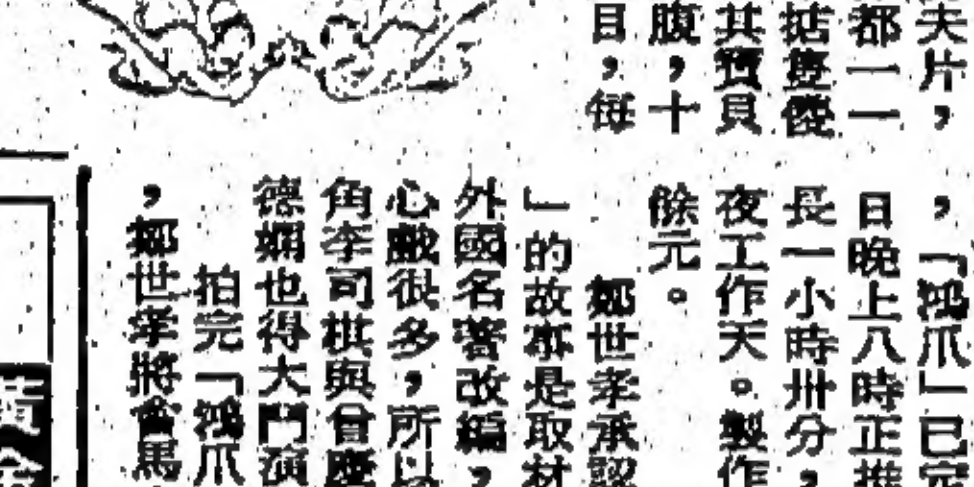 夫片，
都一一
掂隻儍
其寶貝
腹，十
目，每
，「鴻爪」已完
日晚上八時正推
長一小時卅分，
夜工作天。製作
餘元。
鄭世孝承認
」的故事是取材
外國名著改編，
心戲很多，所以
角李司棋與曾慶
德嫻也得大鬥演
拍完「鴻爪
，鄭世孝將會馬